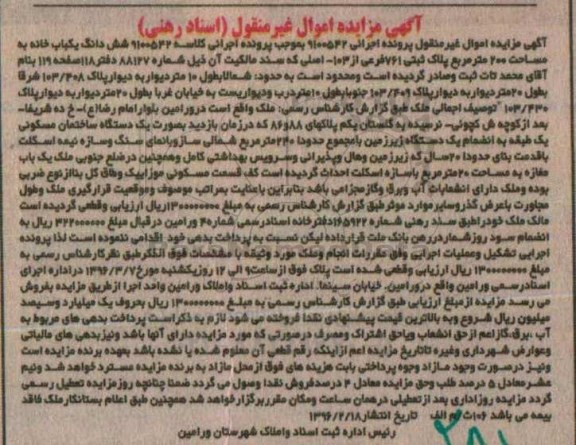 آگهی مزایده اموال غیرمنقول (اسناد رهنی)
آگهی مزایده اموال غیرمنقول پرونده اجرائی ۹۱۰۰۵۴۲ بموجب پرونده اجرائی کلاسه ۹۱۰۰۵۴۲ شش دانگ یکباب خانه به
مساحت ۲۰۰ مترمربع پلاک ثبتی ۷۶۱فرعی از ۱۰۳- اصلی که سند مالکیت آن ذیل شماره ۸۸۱۲۷ دفتر۱۱۸صفحه ۱۱۹ بنام
آقای محمد تات ثبت وصادر گردیده است ومحدود است به حدود: شمالابطول ۱۰ متردیوار به دیوارپلاک ۱۰۳/۴۰۸ شرقا
بطول ۲۰متردیواربه دیوارپلاک ۱۰۳/۴۰۹ جنوبابطول ۱۰متردرب ودیواریست به خیابان غربا بطول ۲۰متردیواربه دیوارپلاک
۱۰۳/۴۳۰ "توصیف اجمالی ملک طبق گزارش کارشناس رسمی: ملک واقع است درورامین بلوارامام رضا(ع)- خ ده شریفا-
بعد ازکوچه ش کچوئی- نرسیده به گلستان یکم پلاکهای ۸۸و۸۶ که درزمان بازدید بصورت یک دستگاه ساختمان مسکونی
یک طبقه به انضمام یک دستگاه زیرزمین بامجموع حدودا ۲۴۰مترمربع شمالی سازوبانمای سنگ وسازه نیمه اسکلت
باقدمت بنای حدودا ۲۰سال که زیرزمین وهال وپذیرائی وسرویس بهداشتی کامل وهمچنین درضلع جنوبی ملک یک باب
مغازه به مساحت ۲۰مترمربع باسازه اسکلت احداث گردیده است کف قسمت مسکونی موزاییک وطاق کل بناازنوع ضربی
بوده وملک دارای انشعابات آب وبرق وگازمجزامی باشد بنابراین باعنایت بمراتب موصوف وموقعیت قرارگیری ملک وطول
مجاورت باعرض گذروسایرموارد موثرطبق گزارش کارشناس رسمی به مبلغ ۱۳۰۰۰۰۰۰۰۰ریال ارزیابی وقطعی گردیده است
مالک ملک خودراطبق سند رهنی شماره ۱۶۵۹۲۲دفترخانه اسنادرسمی شماره۴۰ ورامین درقبال مبلغ ۳۲۲۰۰۰۰۰۰ ریال به
انضمام سود روزشماردررهن بانک ملت قرارداده لیکن نسبت به پرداخت بدهی خود اقدامی ننموده است لذا پرونده
اجرایی تشکیل وعملیات اجرایی وفق مقررات انجام وملک مورد وثیقه با مشخصات فوق الذکرطبق نظرکارشناس رسمی به
مبلغ ۱۳۰۰۰۰۰۰۰۰ ریال ارزیابی وقطعی شده است پلاک فوق ازساعت۹ الی ۱۲ روزیکشنبه مورخ۱۳۹۶/۳/۷ دراداره اجرای
اسنادرسمی ورامین واقع درورامین، خیابان سینما، اداره ثبت اسناد واملاک ورامین واحد اجرا ازطریق مزایده بفروش
می رسد مزایده از مبلغ ارزیابی طبق گزارش کارشناس رسمی به مبلغ ۱۳۰۰۰۰۰۰۰۰ ریال بحروف یک میلیارد وسیصد
میلیون ریال شروع وبه بالاترین قیمت پیشنهادی نقدا فروخته می شود لازم به ذکراست پرداخت بدهی های مربوط به
آب ،برق،گازاعم ازحق انشعاب ویاحق اشتراک ومصرف درصورتی که مورد مزایده دارای آنها باشد ونیزبدهی های مالیاتی
وعوارض شهرداری وغیره تاتاریخ مزایده اعم ازاینکه رقم قطعی آن معلوم شده یا نشده باشد بعهده برنده مزایده است
ونیز درصورت وجود مازاد وجوه پرداختی بابت هزینه های فوق از محل مازاد به برنده مزایده مسترد خواهد شد ونیم
عشرمعادل ۵ درصد طلب وحق مزایده معادل ۴ درصدفروش نقدا وصول می گردد ضمنا چنانچه روزمزایده تعطیل رسمی
گردد مزایده روزاداری بعد ازتعطیلی درهمان ساعت ومکان مقرربرگزارخواهد شد همچنین طبق اعلام بستانکارملک فاقد
بیمه می باشد ۱۰۶ث م الف تاریخ انتشار۱۳۹۶/۲/۱۸
رئیس اداره ثبت اسناد واملاک شهرستان ورامین